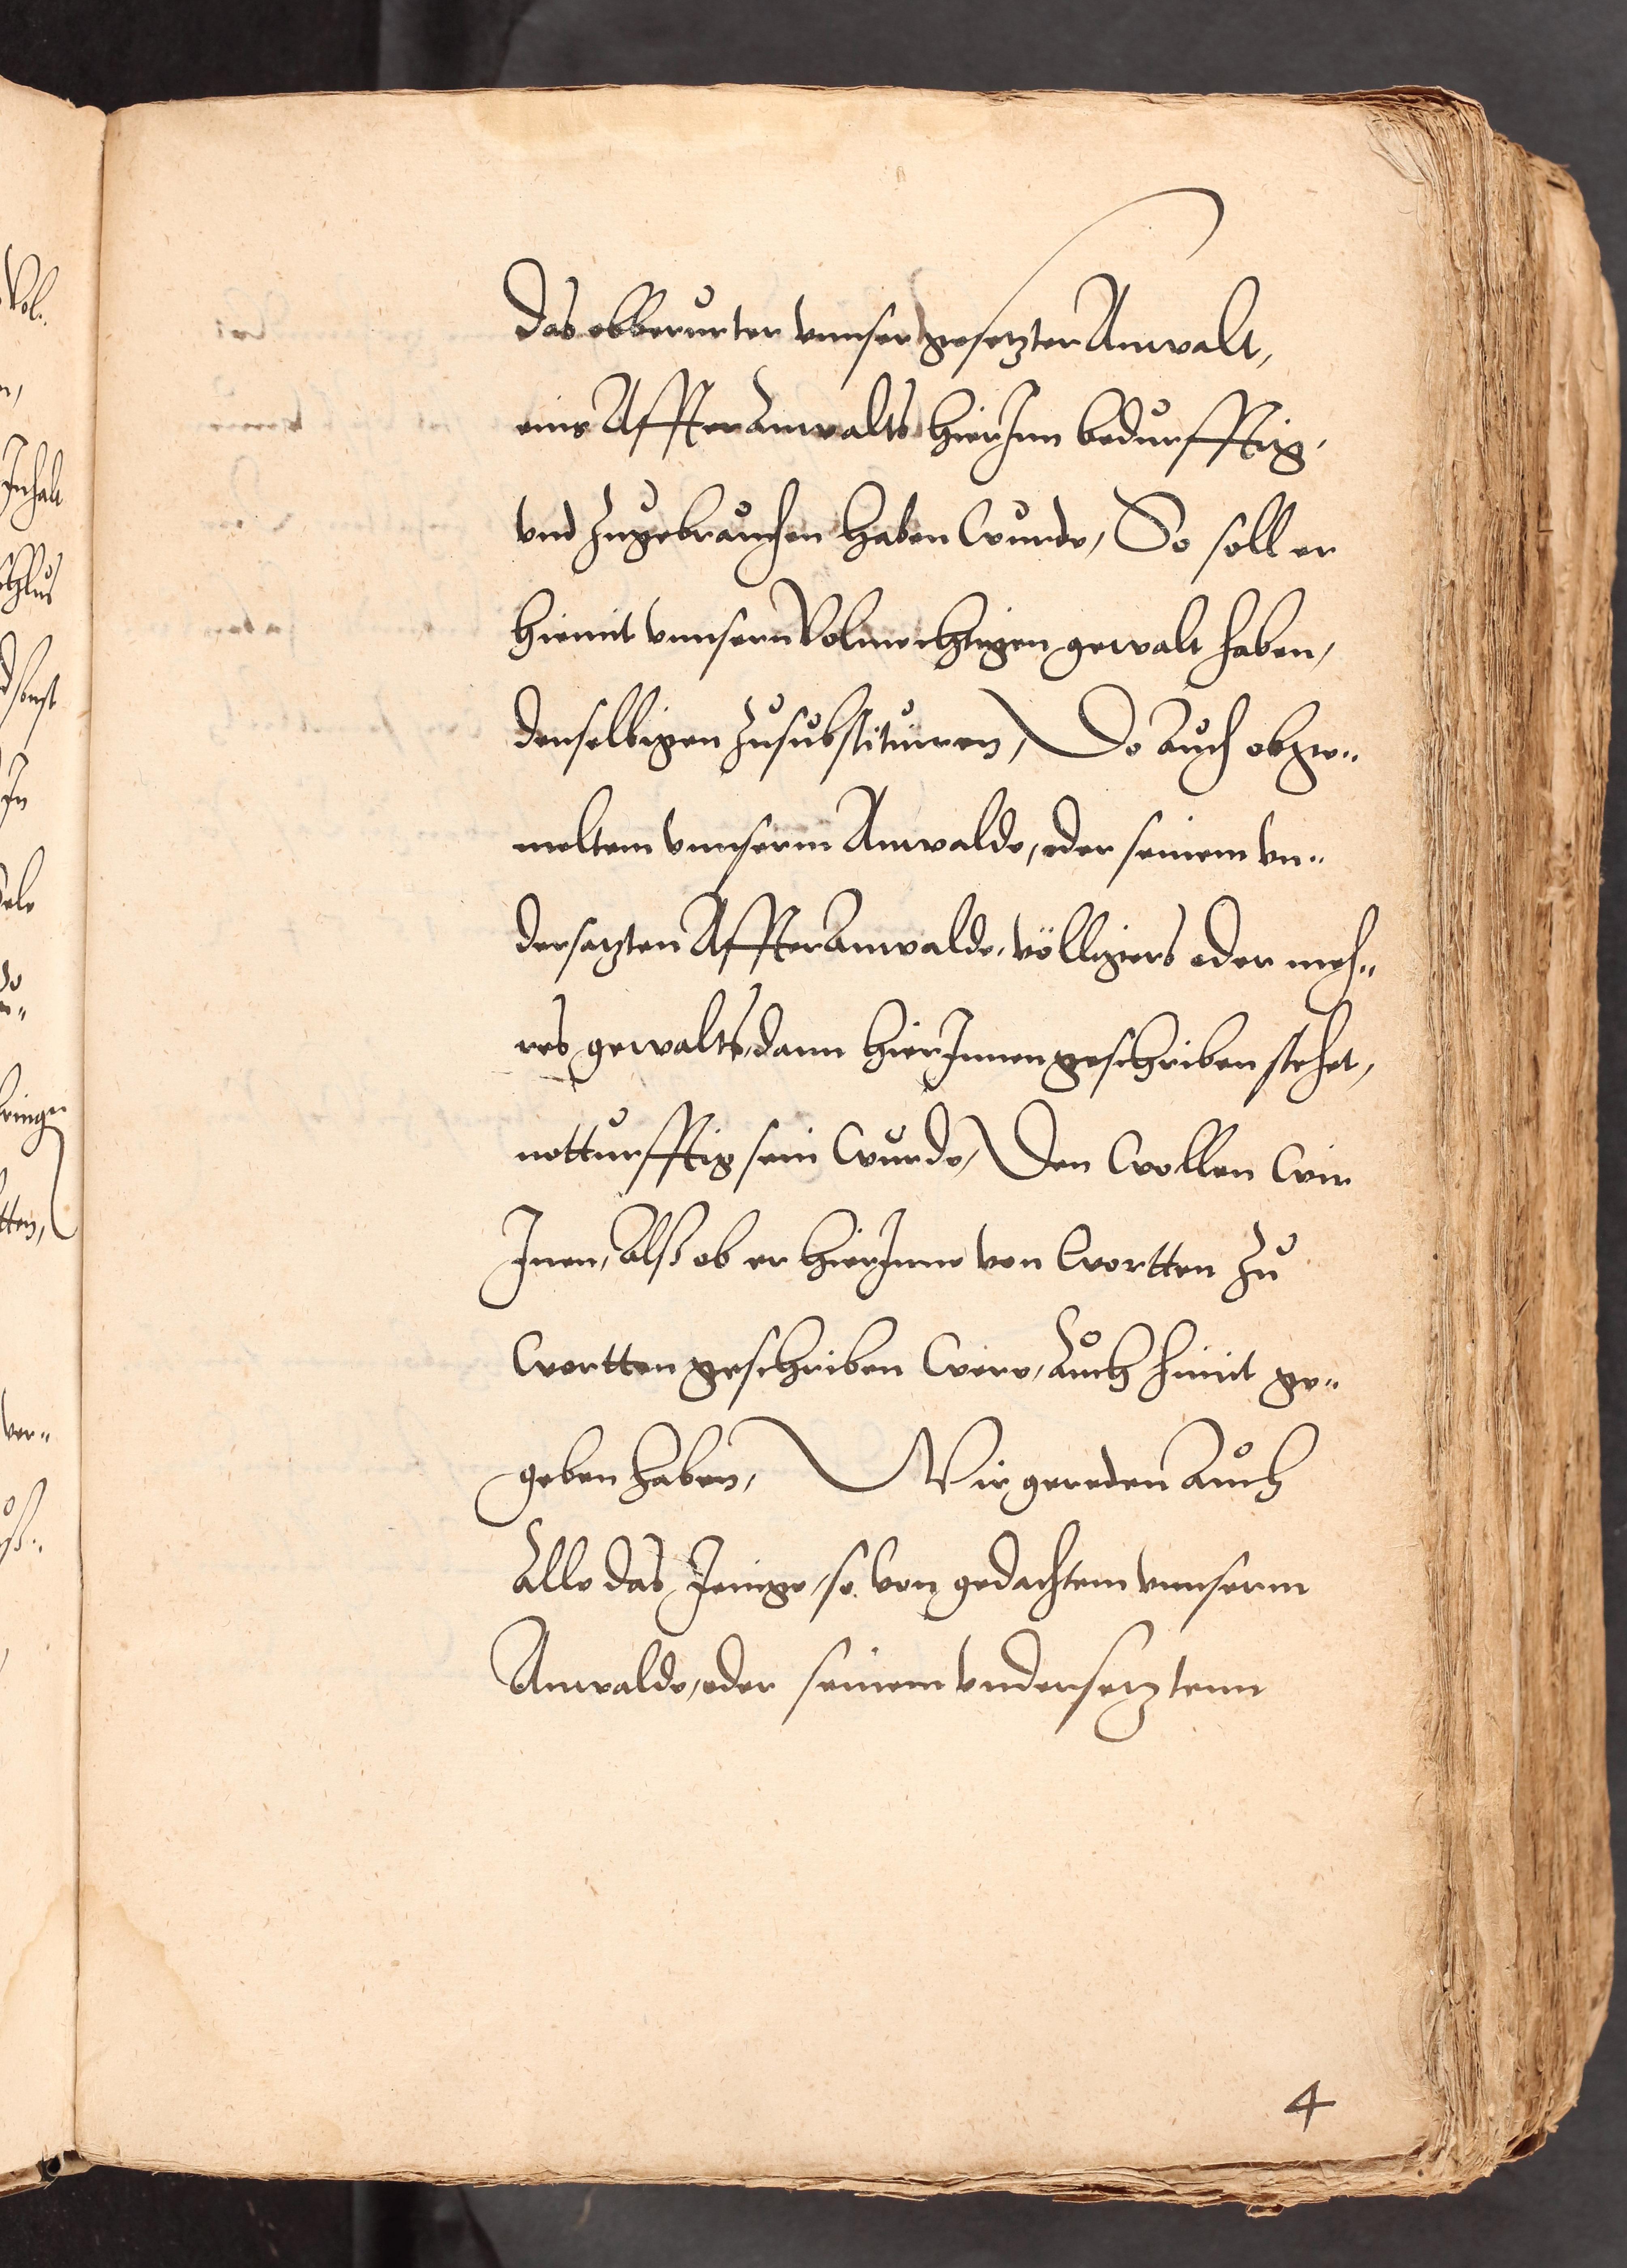 das obberurter vnnser gesetzter Anwalt,
eins AffterAnwalts hierJnn bedurfftig,
vnd zugebrauchen haben wurde, So soll er
hiemit vnnsern Volmechtigen gewalt haben,
denselbigen zusubstituiren, Do auch obge-
meltem vnnserm Anwalde, oder seinem vn-
dersatzten AffterAnwalde, völligers oder meh-
res gewalts, dann hierJnnen geschriben stehet,
notturfftig sein wurde, Den wollen wir
Jnen, Alß ob er hierJnne von wortten zu
wortten geschriben were, Auch himit ge-
geben haben, Wir gereden Auch
Alle das Jenige, so von gedachtem vnnserm
Anwalde, oder seinem vndersetztenn
4
Vol-
Jnhalt
sonst
Jn
ver-